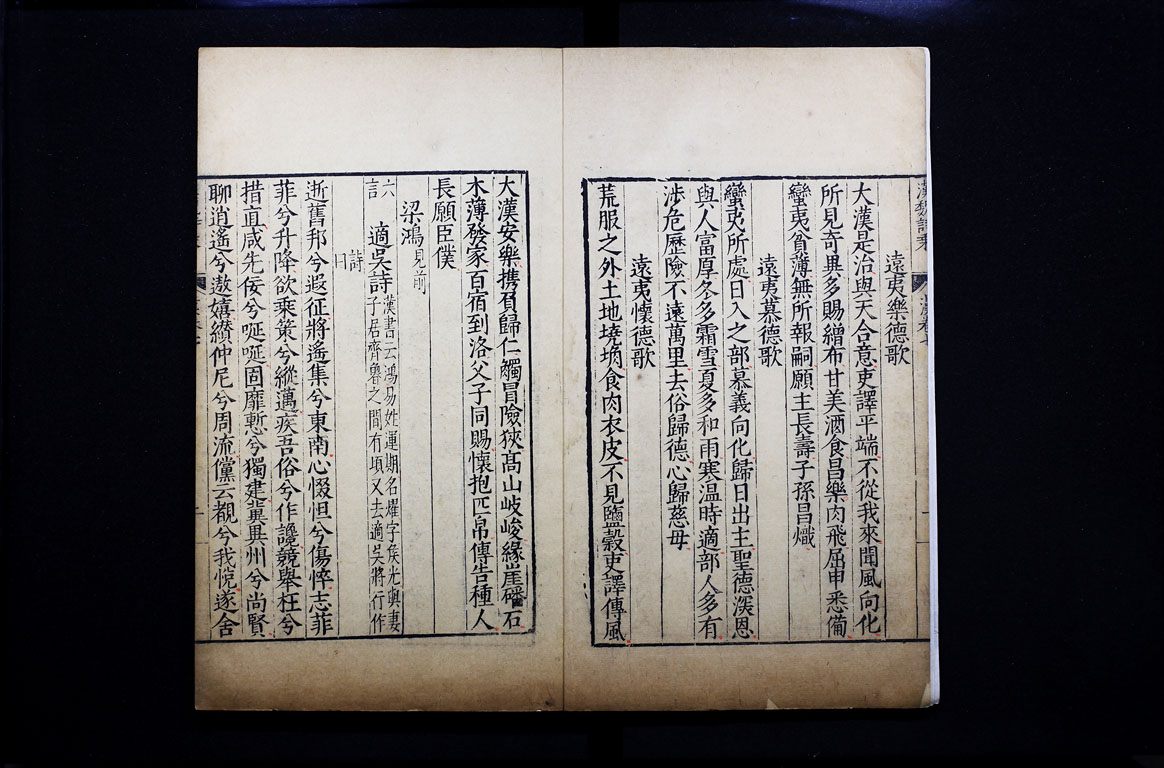 遠夷樂德歌
大漢是治與天合意吏譯平端不從我來聞風向化
所見奇異多賜繒布甘美酒食昌樂肉飛屈申悉備
蠻夷貧薄無所報嗣願主長壽子孫昌熾
遠夷慕德歌
蠻夷所處日入之部慕義向化歸日出主聖德渼恩
與人富厚冬多霜雪夏多和雨寒温時適部人多有
涉危歷險不遠萬里去俗歸德心歸慈母
遠夷懷德歌
荒服之外土地墝埆食肉衣皮不見鹽穀吏譯傳風
大漢安樂携負歸仁觸冒險狹髙山岐峻緣崖磻石
木薄發家百宿到洛父子同賜懷抱匹帛傳告種人
長願臣僕
梁鴻見前
六言
適吳詩漢書云鴻易姓運期名燿字侯光與妻
子居齊魯之間有頃又去適吳將行作
詩曰
逝舊邦兮遐征將遙集兮東南心惙怛兮傷悴志菲
菲兮升降欲乘策兮縱邁疾吾俗兮作讒競舉枉兮
措直咸先佞兮唌唌固靡慙兮獨建冀異州兮尚賢
聊逍遙兮遨嬉纘仲尼兮周流儻云覩兮我悅遂舍